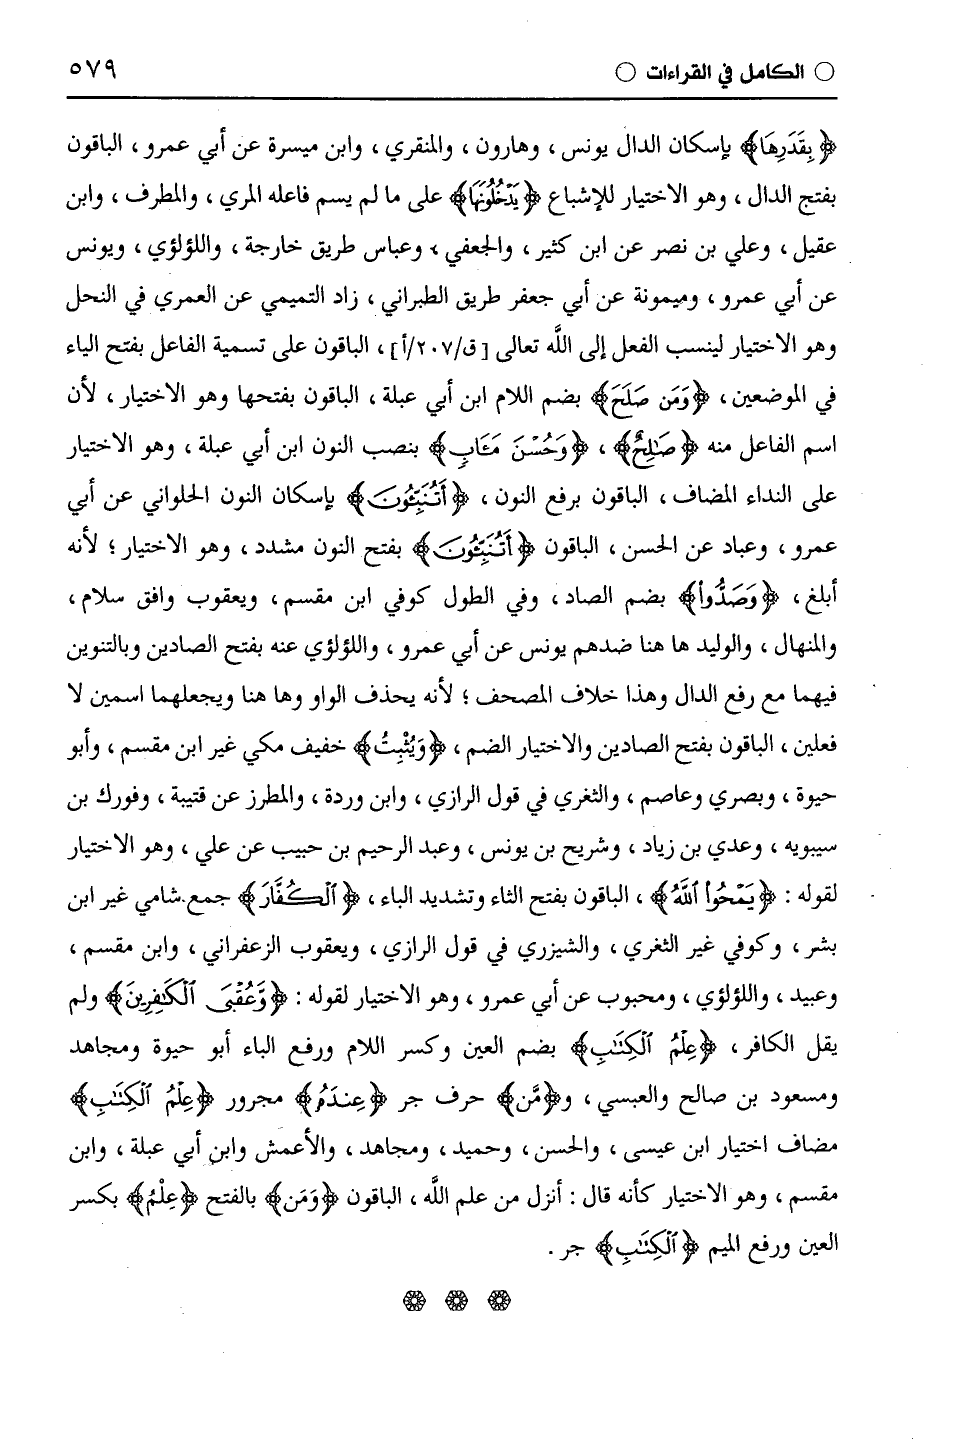 ○ الكامل في القراءات ○
٥٧٩
﴿بِقَدَرِهَا﴾ بإسكان الدال يونس ، وهارون ، والمنقري ، وابن ميسرة عن أبي عمرو ، الباقون
بفتح الدال ، وهو الاختيار للإشباع ﴿يَدْخُلُونَهَا﴾ على ما لم يسم فاعله المري ، والمطرف ، وابن
عقيل ، وعلي بن نصر عن ابن كثير ، والجعفي ، وعباس طريق خارجة ، واللؤلؤي ، ويونس
عن أبي عمرو ، وميمونة عن أبي جعفر طريق الطبراني ، زاد التميمي عن العمري في النحل
وهو الاختيار لينسب الفعل إلى اللَّه تعالى [ق/٢٠٧/أ] ، الباقون على تسمية الفاعل بفتح الياء
في الموضعين ، ﴿وَمَن صَلَحَ﴾ بضم اللام ابن أبي عبلة ، الباقون بفتحها وهو الاختيار ، لأن
اسم الفاعل منه ﴿صَالِحٌ﴾ ، ﴿وَحُسْنَ مَـَٔابٍ﴾ بنصب النون ابن أبي عبلة ، وهو الاختيار
على النداء المضاف ، الباقون برفع النون ، ﴿أَتُنَبِّئُونَ﴾ بإسكان النون الحلواني عن أبي
عمرو ، وعباد عن الحسن ، الباقون ﴿أَتُنَبِّئُونَ﴾ بفتح النون مشدد ، وهو الاختيار ؛ لأنه
أبلغ ، ﴿وَصَدُّواْ﴾ بضم الصاد ، وفي الطول كوفي ابن مقسم ، ويعقوب وافق سلام ،
والمنهال ، والوليد ها هنا ضدهم يونس عن أبي عمرو ، واللؤلؤي عنه بفتح الصادين وبالتنوين
فيهما مع رفع الدال وهذا خلاف المصحف ؛ لأنه يحذف الواو وها هنا ويجعلهما اسمين لا
فعلين ، الباقون بفتح الصادين والاختيار الضم ، ﴿وَيُثْبِتُ﴾ خفيف مكي غير ابن مقسم ، وأبو
حيوة ، وبصري وعاصم ، والثغري في قول الرازي ، وابن وردة ، والمطرز عن قتيبة ، وفورك بن
سيبويه ، وعدي بن زياد ، وشريح بن يونس ، وعبد الرحيم بن حبيب عن علي ، وهو الاختيار
لقوله : ﴿يَمْحُواْ ٱللَّهُ﴾ ، الباقون بفتح الثاء وتشديد الباء ، ﴿ٱلْكُفَّٰرَ﴾ جمع شامي غير ابن
بشر ، وكوفي غير الثغري ، والشيزري في قول الرازي ، ويعقوب الزعفراني ، وابن مقسم ،
وعبيد ، واللؤلؤي ، ومحبوب عن أبي عمرو ، وهو الاختيار لقوله : ﴿وَّعُقْبَى ٱلْكَٰفِرِينَ﴾ ولم
يقل الكافر ، ﴿عِلْمُ ٱلْكِتَٰبِ﴾ بضم العين وكسر اللام ورفع الباء أبو حيوة ومجاهد
ومسعود بن صالح والعبسي ، و﴿مَّن﴾ حرف جر ﴿عِندَهُۥ﴾ مجرور ﴿عِلْمُ ٱلْكِتَٰبِ﴾
مضاف اختيار ابن عيسى ، والحسن ، وحميد ، ومجاهد ، والأعمش وابن أبي عبلة ، وابن
مقسم ، وهو الاختيار كأنه قال : أنزل من علم اللَّه ، الباقون ﴿وَمَن﴾ بالفتح ﴿عِلْمُ﴾ بكسر
العين ورفع الميم ﴿ٱلْكِتَٰبِ﴾ جر .